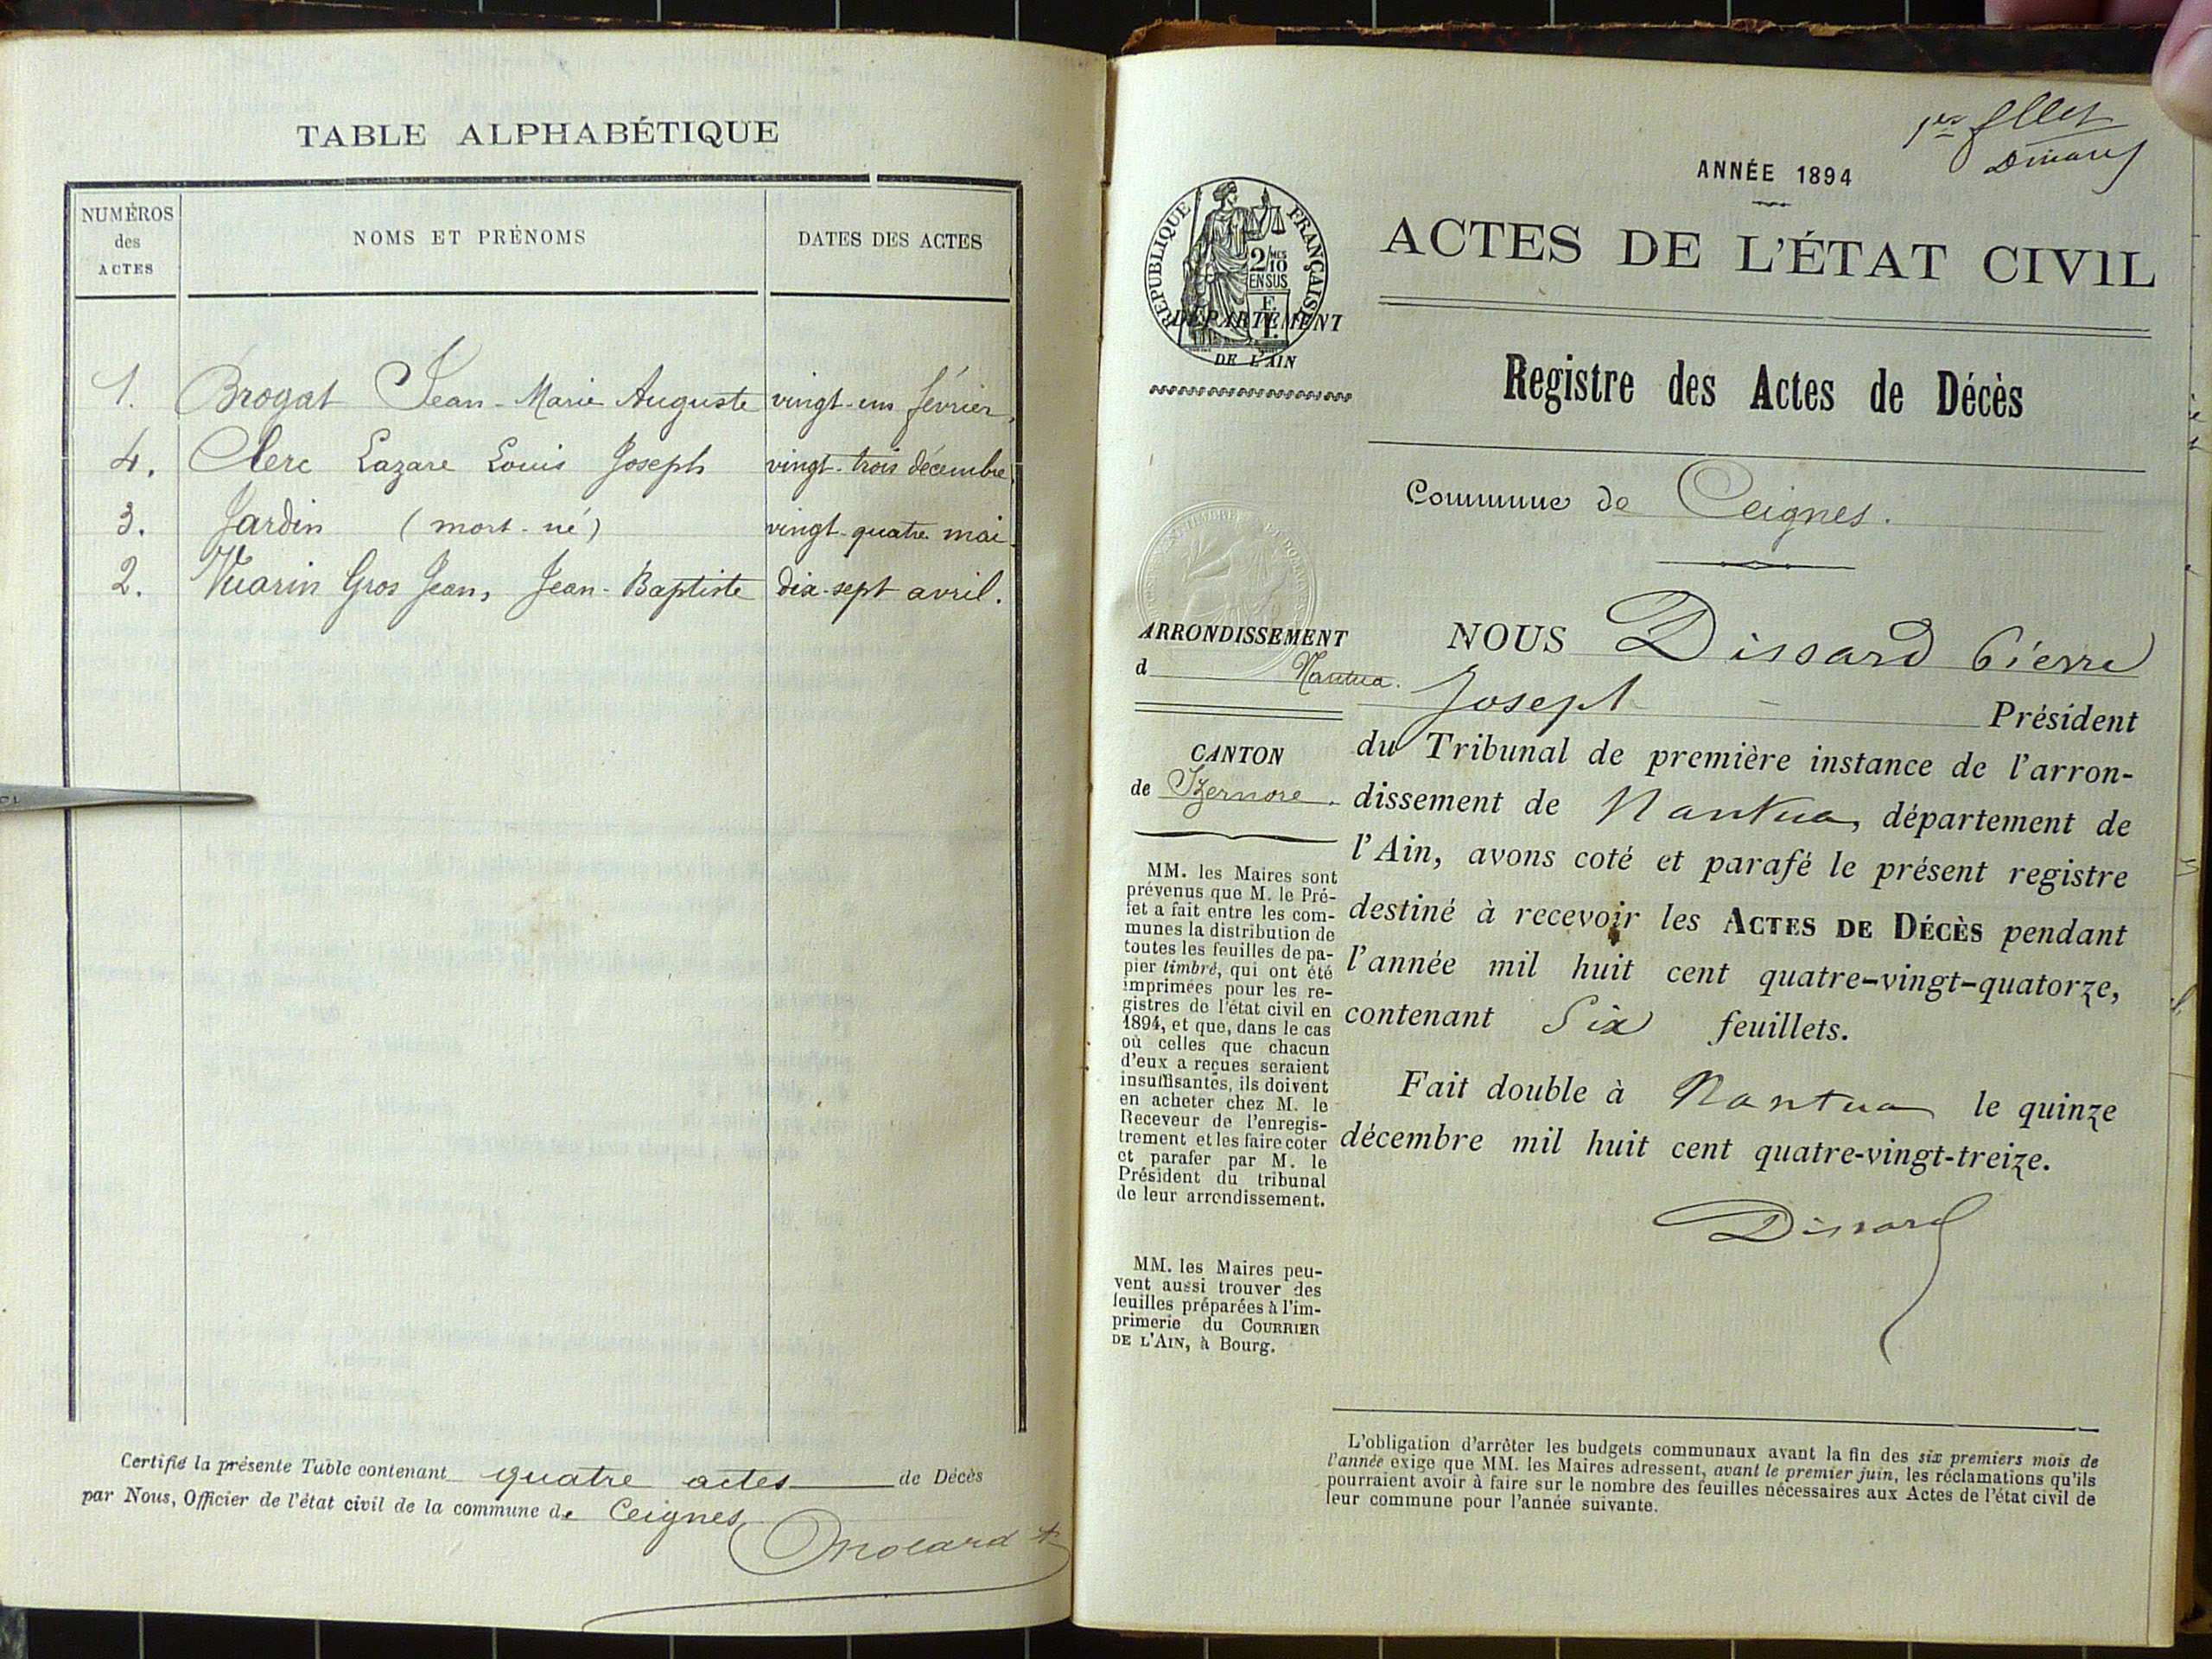 TABLE ALPHABÉTIQUE
NUMÉROS
des
ACTES
NOMS ET PRÉNOMS
DATES DES ACTES
1. Brogat Jean-Marie Auguste vingt-un février,
4. Clerc Lazare Louis Joseph vingt-trois décembre
3. Jardin (mort-né) vingt-quatre mai
2. Vuarin Gros Jean, Jean-Baptiste dix-sept avril.
Certifié la présente Table contenant quatre actes de Décès
par Nous, Officier de l'état civil de la commune de Ceignes
ANNÉE 1894
Dissard
RÉPUBLIQUE FRANÇAISE
2/10
MES
EN SUS
DÉPARTEMENT
DE L'AIN
ACTES DE L'ÉTAT CIVIL
Registre des Actes de Décès
Commune de Ceignes.
ARRONDISSEMENT
d Nantua.
CANTON
de Izernore.
MM. les Maires sont
prévenus que M. le Pré-
fet a fait entre les com-
munes la distribution de
toutes les feuilles de pa-
pier timbré, qui ont été
imprimées pour les re-
gistres de l'état civil en
1894, et que, dans le cas
où celles que chacun
d'eux a reçues seraient
insuffisantes, ils doivent
en acheter chez M. le
Receveur de l'enregis-
trement et les faire coter
et parafer par M. le
Président du tribunal
de leur arrondissement.
MM. les Maires peu-
vent aussi trouver des
feuilles préparées à l'im-
primerie du COURRIER
DE L'AIN, à Bourg.
NOUS Dissard Pierre
Joseph Président
du Tribunal de première instance de l'arron-
dissement de Nantua, département de
l'Ain, avons coté et parafé le présent registre
destiné à recevoir les ACTES DE DÉCÈS pendant
l'année mil huit cent quatre-vingt-quatorze,
contenant Six feuillets.
Fait double à Nantua le quinze
décembre mil huit cent quatre-vingt-treize.
Dissard
L'obligation d'arrêter les budgets communaux avant la fin des six premiers mois de
l'année exige que MM. les Maires adressent, avant le premier juin, les réclamations qu'ils
pourraient avoir à faire sur le nombre des feuilles nécessaires aux Actes de l'état civil de
leur commune pour l'année suivante.